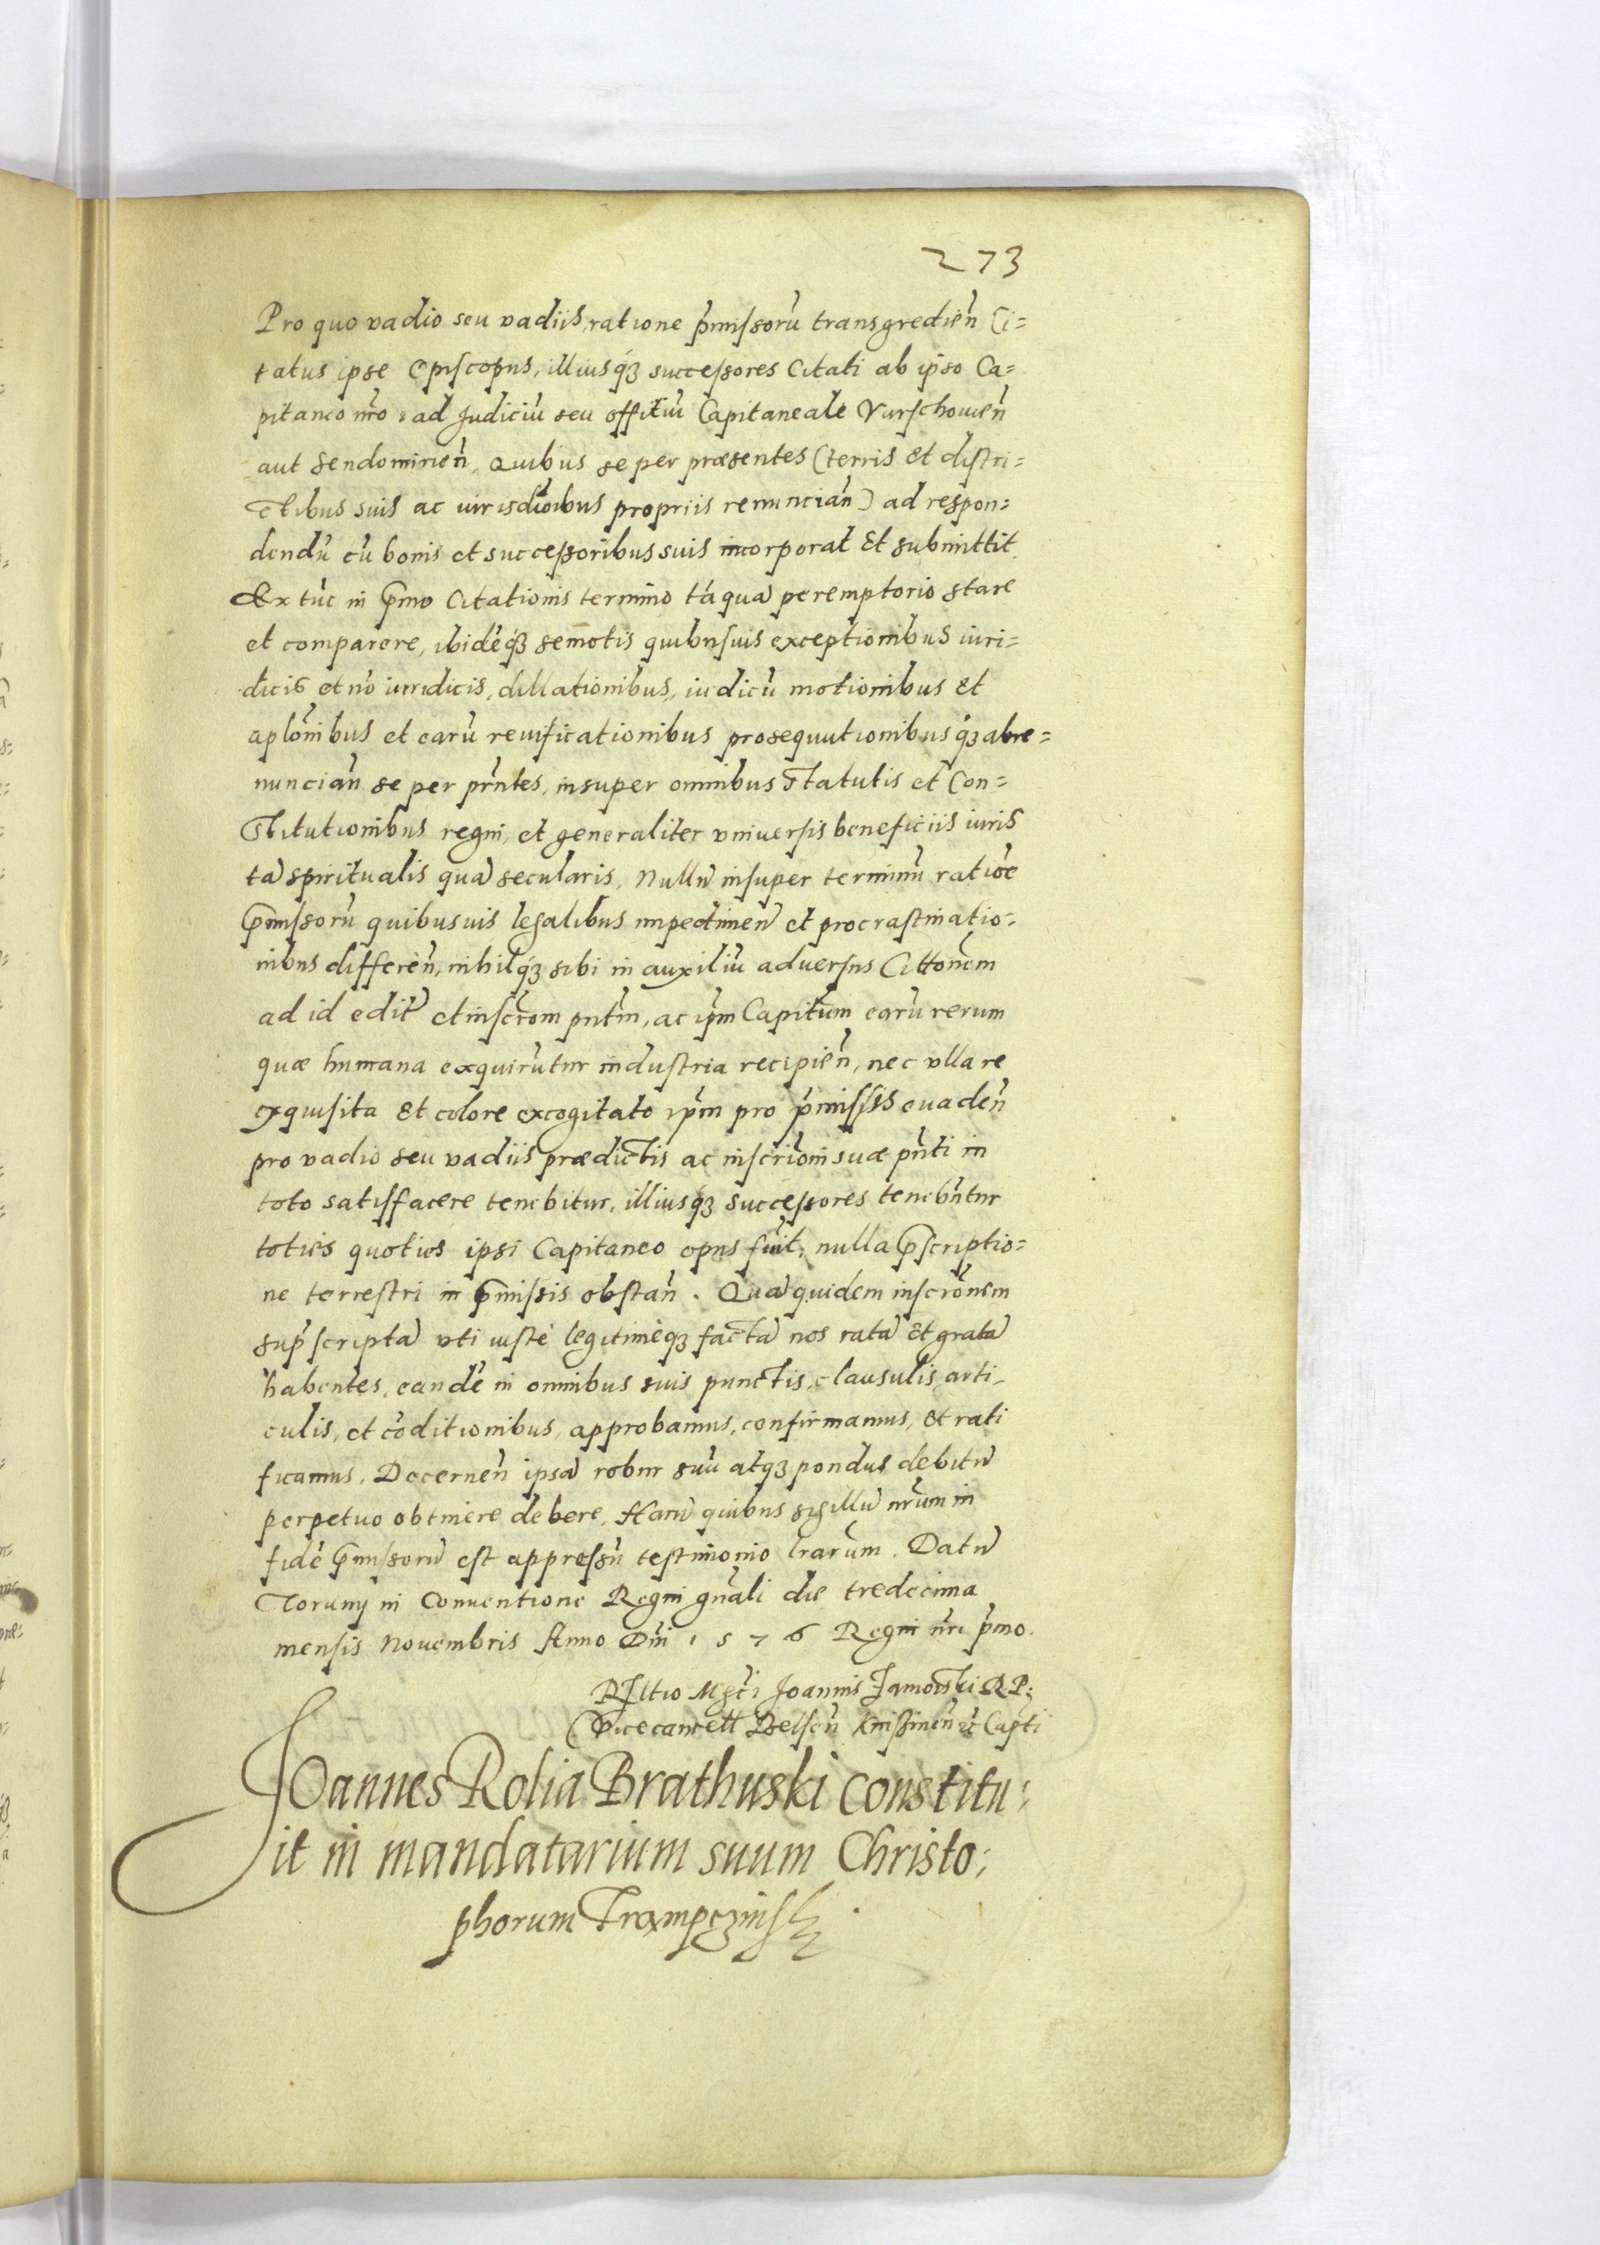 273
Pro quo vadio seu vadiis, ratione p̃missorũ transgredieñ Ci=
tatus ipse Episcopus, illiusq́ꝫ successores Citati ab ipso Ca=
pitaneo nr̃o, ad Judiciũ seu offitiũ Capitaneale Varschouieñ
aut Sendomirieñ, Quibus se per præsentes (terris et distri=
ctibus suis ac iurisdic̃oibus propriis renuncian̄) ad respon=
dendũ cũ bonis et successoribus suis incorporat Et submittit.
Ex tũc in p̃mo Citationis termino tãquã peremptorio stare
et comparere, ibidéq́ꝫ semotis quibusuis exceptionibus iuri=
dicis et nõ iuridicis, dillationibus, iudicũ motionibus Et
aplõnibus et earũ reuificationibus prosequutionibusq́ꝫ abre=
nuncian̄ se per pñtes, insuper omnibus Statutis et Con=
stitutionibus regni, et generaliter vniuersis beneficiis iuris
tã spiritualis quã secularis, Nullũ insuper terminũ ratiõe
p̃missorũ quibusuis legalibus impedimeñ et procrastinatio=
nibus differeñ, nihilq́ꝫ sibi in auxiliũ aduersus Cittõnem
ad id editã et inscr̃om pñtm, ac ip̃m Capit̃um earũ rerum
quæ humana exquirũtur industria recipieñ, nec vlla re
exquisita Et colore excogitato ip̃m pro p̃missis euadeñ
pro vadio seu vadiis prædictis ac inscriõni suæ pñti in
toto satisfacere tenebitur, illiusq́ꝫ successores tenebñtur
toties quoties ipsi Capitaneo opus fũit, nulla p̃scriptio=
ne terrestri in p̃missis obstan̄. Quã quidem inscrõnem
sup̃scriptã vti iustè legitimèqꝫ factã nos ratã Et gratã
habentes, eandẽ in omnibus suis punctis, clausulis, arti=
culis, et cõditionibus, approbamus, confirmamus, Et rati
ficamus. Decerneñ ipsã robur suũ atqꝫ pondus debitũ
perpetuo obtinere debere, Harũ quibus sigillũ nr̃um in
fidẽ p̃missorũ est appressũ testimonio lr̃arum. Datũ
Toruny in Conuentione Regni gñali die tredecima
mensis Nouembris Anno Dñi 1576 Regni nr̃i p̃mo.
Rel̃tio Mg̃ci Joannis Zamoiski R P:
Vicecancell Belseñ Knissineñ Capti
Joannes Rolia Brathuski constitu:
it in mandatarium suum Christo:
phorum Trampczinsky.